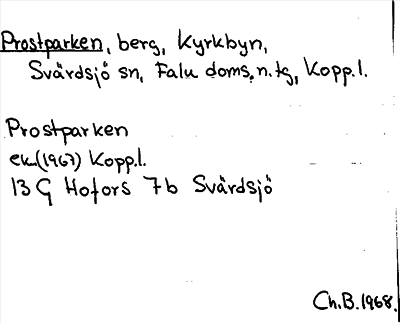 Prostparken, berg, Kyrkbyn,
Svärdsjö sn, Falu doms.n.tg, Kopp.l.
Prostparken
ek.(1967) Kopp.l.
13 G Hofors 7b Svärdsjö
Ch.B.1968.